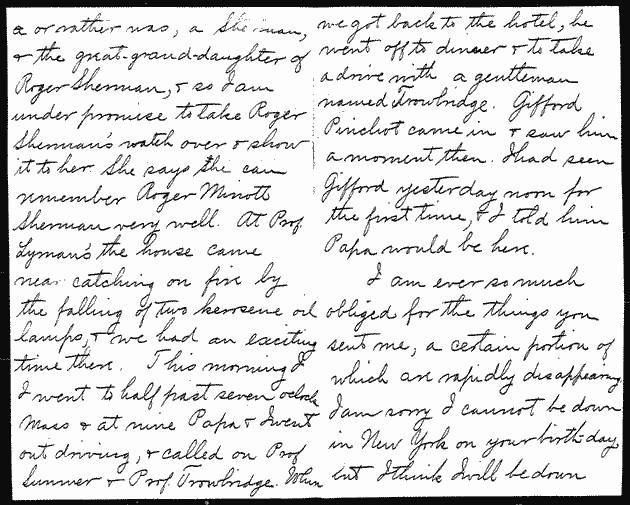 a or rather was, a Sherman,
& the great-grand-daughter of
Roger Sherman, & so I am
under promise to take Roger
Sherman's watch over & show
it to her. She says she can
remember Roger Minott
Sherman very well. At Prof.
Lyman's the house came
near catching on fire by
the falling of two kerosene oil
lamps, & we had an exciting
time there. This morning I
I went to half past seven oclock
Mass & at nine Papa & I went
out driving, & called on Prof
Sumner & Prof. Trowbridge. When
we got back to the hotel, he
went off to dinner & to take
a drive with a gentleman
named Trowbridge. Gifford
Pinchot came in & saw him
a moment then. I had seen
Gifford yesterday noon for
the first time, & I told him
Papa would be here.
I am ever so much
obliged for the things you
sent me, a certain portion of
which are rapidly disappearing
I am sorry I cannot be down
in New York on your birth-day,
but I think I will be down